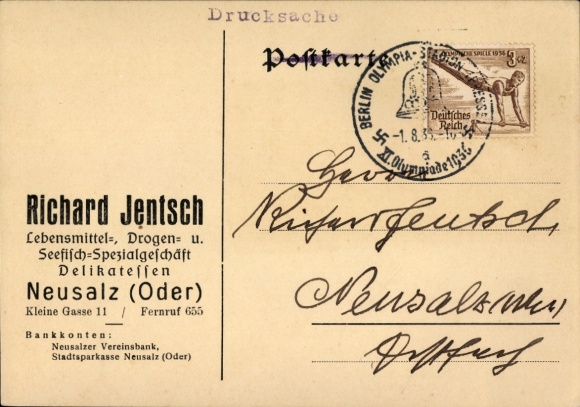 Drucksache
Postkarte
BERLIN OLYMPIA-STADION
-1.8.36.-10
a
XI. Olympiade 1936
OLYMPISCHE SPIELE 1936
3
Deutsches
Reich
Herrn
Richard Jentsch,
Neusalz (Oder)
Postfach
Richard Jentsch
Lebensmittel-, Drogen- u.
Seefisch-Spezialgeschäft
Delikatessen
Neusalz (Oder)
Kleine Gasse 11 / Fernruf 655
Bankkonten:
Neusalzer Vereinsbank,
Stadtsparkasse Neusalz (Oder)